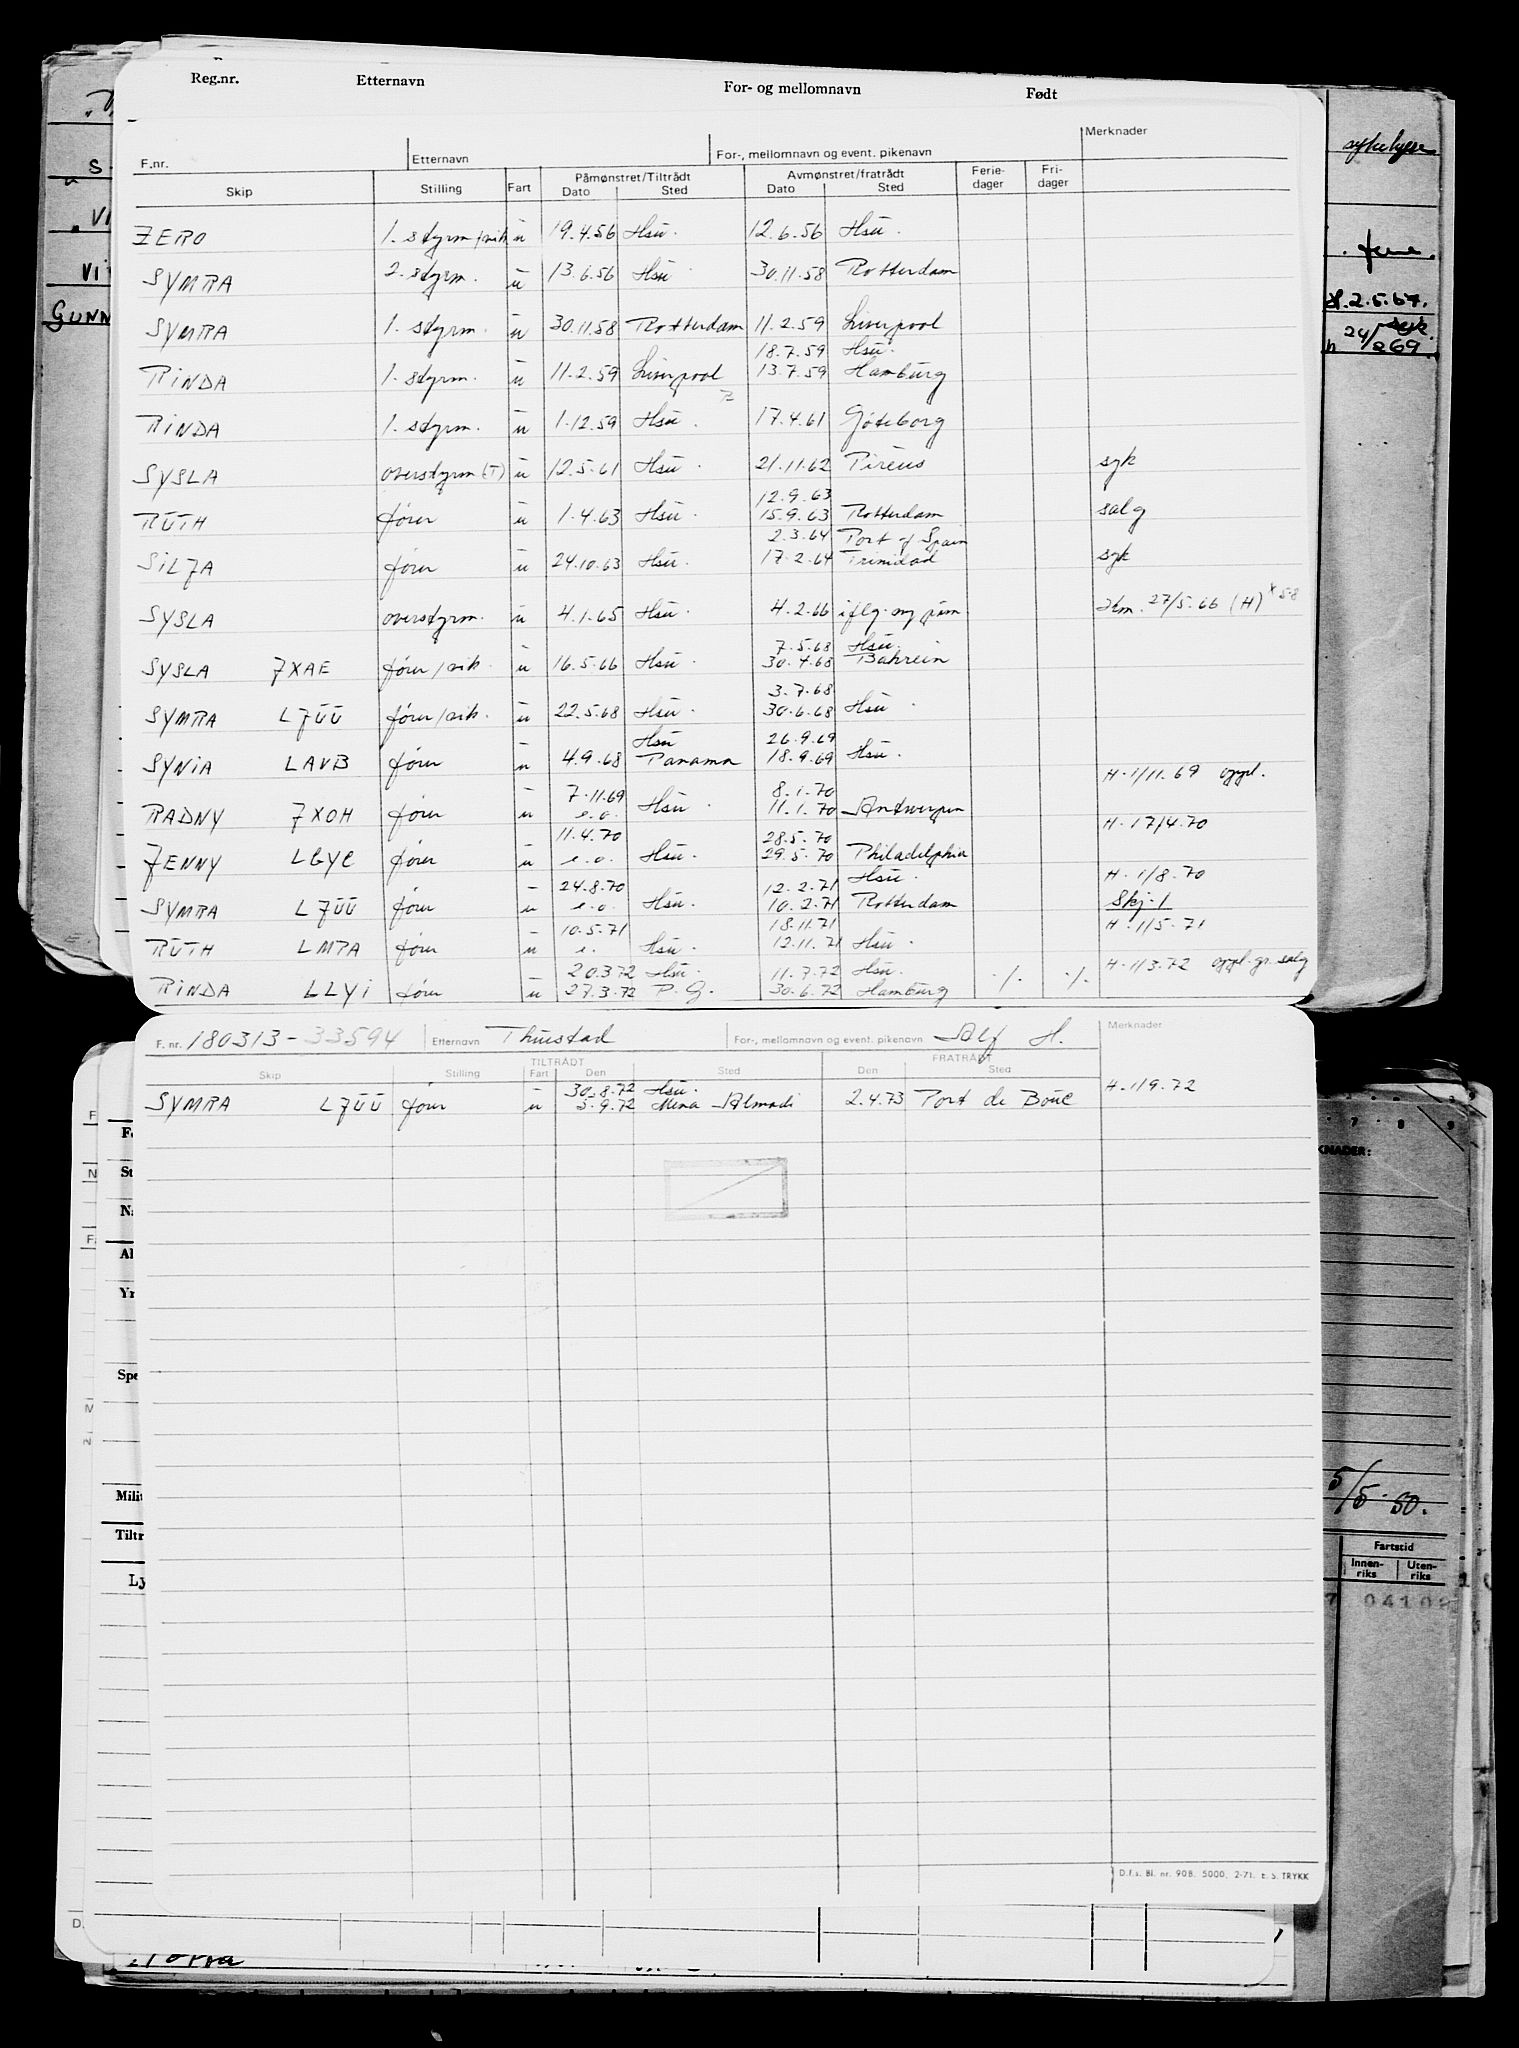 Reg.nr. Etternavn For- og mellomnavn Født
F.nr. Etternavn For-, mellomnavn og event. pikenavn Merknader
Skip Stilling Fart Påmønstret/Tiltrådt Dato Sted Avmønstret/fratrådt Dato Sted Ferie-dager Fri-dager
ZERO 1. styrm/vik ü 19.4.56 Hsü. 12.6.56 Hsü.
SYMRA 2. styrm. ü 13.6.56 Hsü 30.11.58 Rotterdam
SYMRA 1. styrm. ü 30.11.58 Rotterdam 11.2.59 Liverpool
18.7.59 Hsü.
RINDA 1. styrm. ü 11.2.59 Liverpool 13.7.59 Hamburg
RINDA 1. styrm. ü 1.12.59 Hsü. 17.4.61 Göteborg
SYSLA overstyrm (T) ü 12.5.61 Hsü. 21.11.62 Pireus syk
12.9.63
RUTH fører ü 1.4.63 Hsü. 15.9.63 Rotterdam salg
2.3.64 Port of Spain
SILJA fører ü 24.10.63 Hsü. 17.2.64 Trinidad syk
SYSLA overstyrm. ü 4.1.65 Hsü. 4.2.66 iflg. ny påm 27/5.66 (H)
7.5.68 Hsü.
SYSLA JXAE fører/vik. ü 16.5.66 Hsü. 30.4.68 Bahrein
3.7.68
SYMRA LJÜÜ fører/vik. ü 22.5.68 Hsü. 30.6.68 Hsü.
Hsü 26.9.69
SYNIA LAVB fører ü 4.9.68 Panama 18.9.69 Hsü.
7.11.69 8.1.70 H. 1/11.69 oppl.
RADNY JXOH fører ü e.o. Hsü. 11.1.70 Antwerpen
11.4.70 28.5.70 H. 17/4.70
JENNY LGYC fører ü e.o. Hsü. 29.5.70 Philadelphia
24.8.70 12.2.71 Hsü. H. 1/8.70
SYMRA LJÜÜ fører ü e.o. Hsü. 10.2.71 Rotterdam Skj. 1
10.5.71 18.11.71 H. 1/5.71
RUTH LMPA fører ü e. Hsü. 12.11.71 Hsü.
20.3.72 Hsü. 11.7.72 Hsü. H. 1/3.72 oppl. gr. salg
RINDA LLYI fører ü 27.3.72 P.G. 30.6.72 Hamburg ./. ./.
F. nr. 180313-33594 Etternavn Thuestad For-, mellomnavn og event. pikenavn Alf H. Merknader
TILTRÅDT FRATRÅDT
Skip Stilling Fart Den Sted Den Sted
30.8.72 Hsü. H. 1/9.72
SYMRA LJÜÜ fører ü 5.9.72 Mena Almadi 2.4.73 Port de Bouc
D.f.s. Bl. nr. 90B. 5000. 2-71. E.S. TRYKK
GUNN
2.5.67.
5/5.50.
KNADER:
Fartstid
Innen-riks Uten-riks
Milit
Tiltr
Ly
Spe